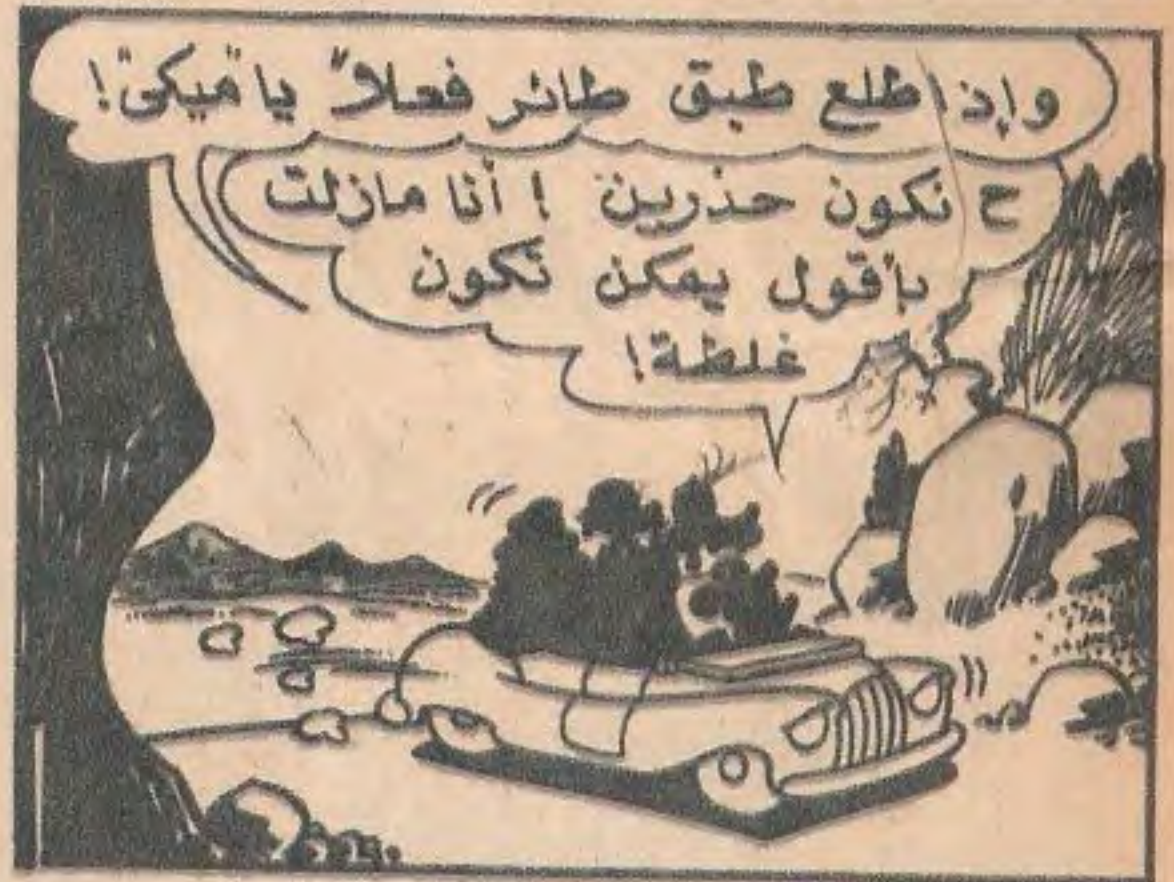 وإذا طلع طبق طائر فعلاً يا "ميكى"!
ح نكون حذرين ! أنا مازلت
بأقول يمكن تكون
غلطة!